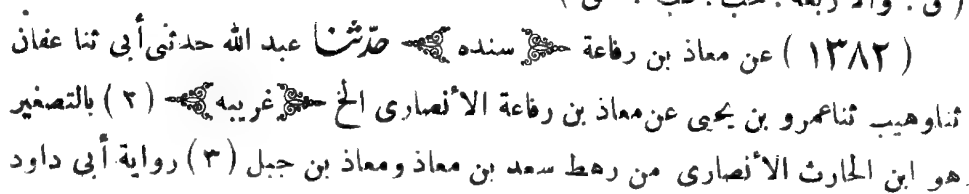 (١٣٨٢) عن معاذ بن رفاعة سنده حدثنا عبد الله حدثنى أبى ثنا عفان
ثنا وهيب ثنا عمرو بن يحيى عن معاذ بن رفاعة الأنصارى الخ غريبه (٢) بالتصغير
هو ابن الحارث الأنصارى من رهط سعد بن معاذ ومعاذ بن جبل (٣) رواية أبى داود